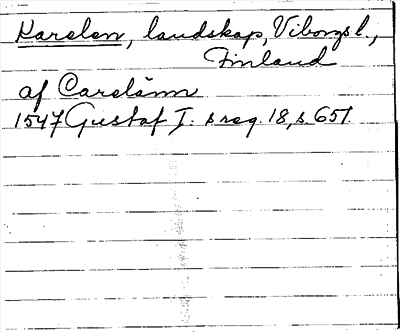 Karelen, landskap, Viborgs l.,
Finland
af Carelänn
1547 Gustaf I. s reg. 18, s. 651.